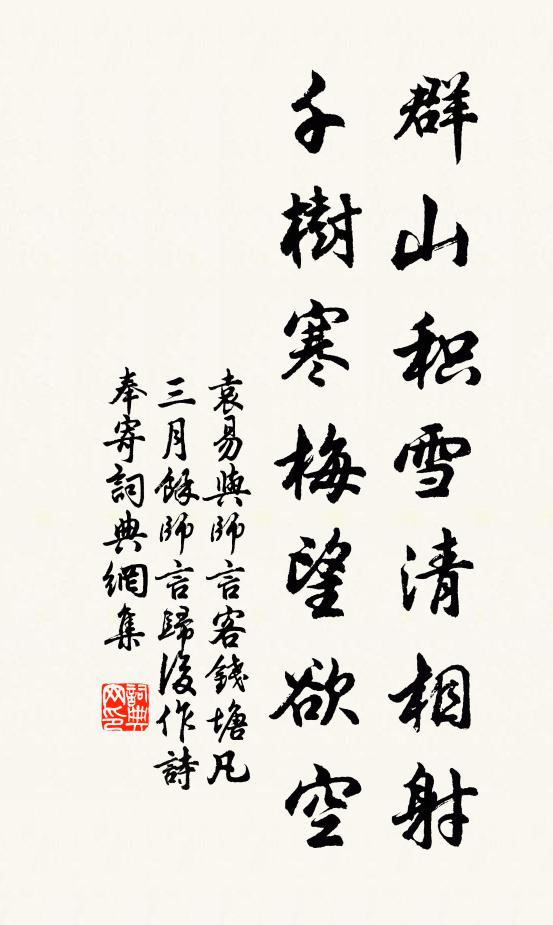 群山积雪清相射
千樹寒梅望欲空
袁易與師言客錢塘凡
三月餘師言歸後作詩
奉寄詞典網集
詞典
网印